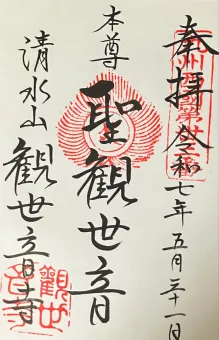 奉拝 令和七年五月三十一日
本尊 聖観世音
清水山 観世音寺
観世音寺